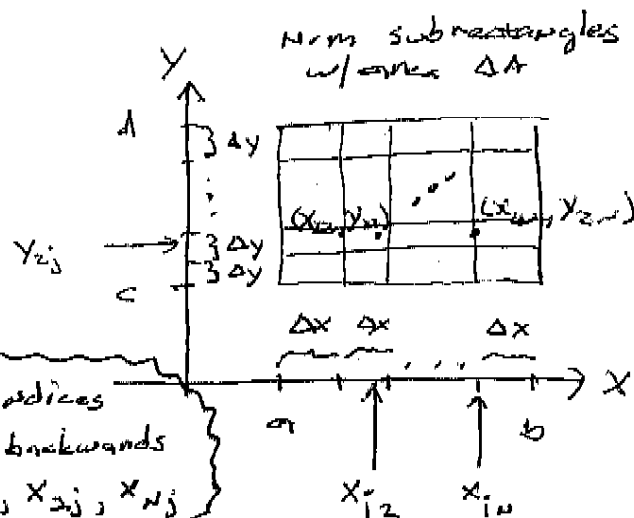 N·m subrectangles
w/ area ΔA
Y
d
Δy
(x
Y₂ⱼ
Δy
Δy
c
Δx Δx ... Δx
X
a
b
indices
backwards
, X₂ⱼ, X_Nⱼ
X_i₂ X_iN